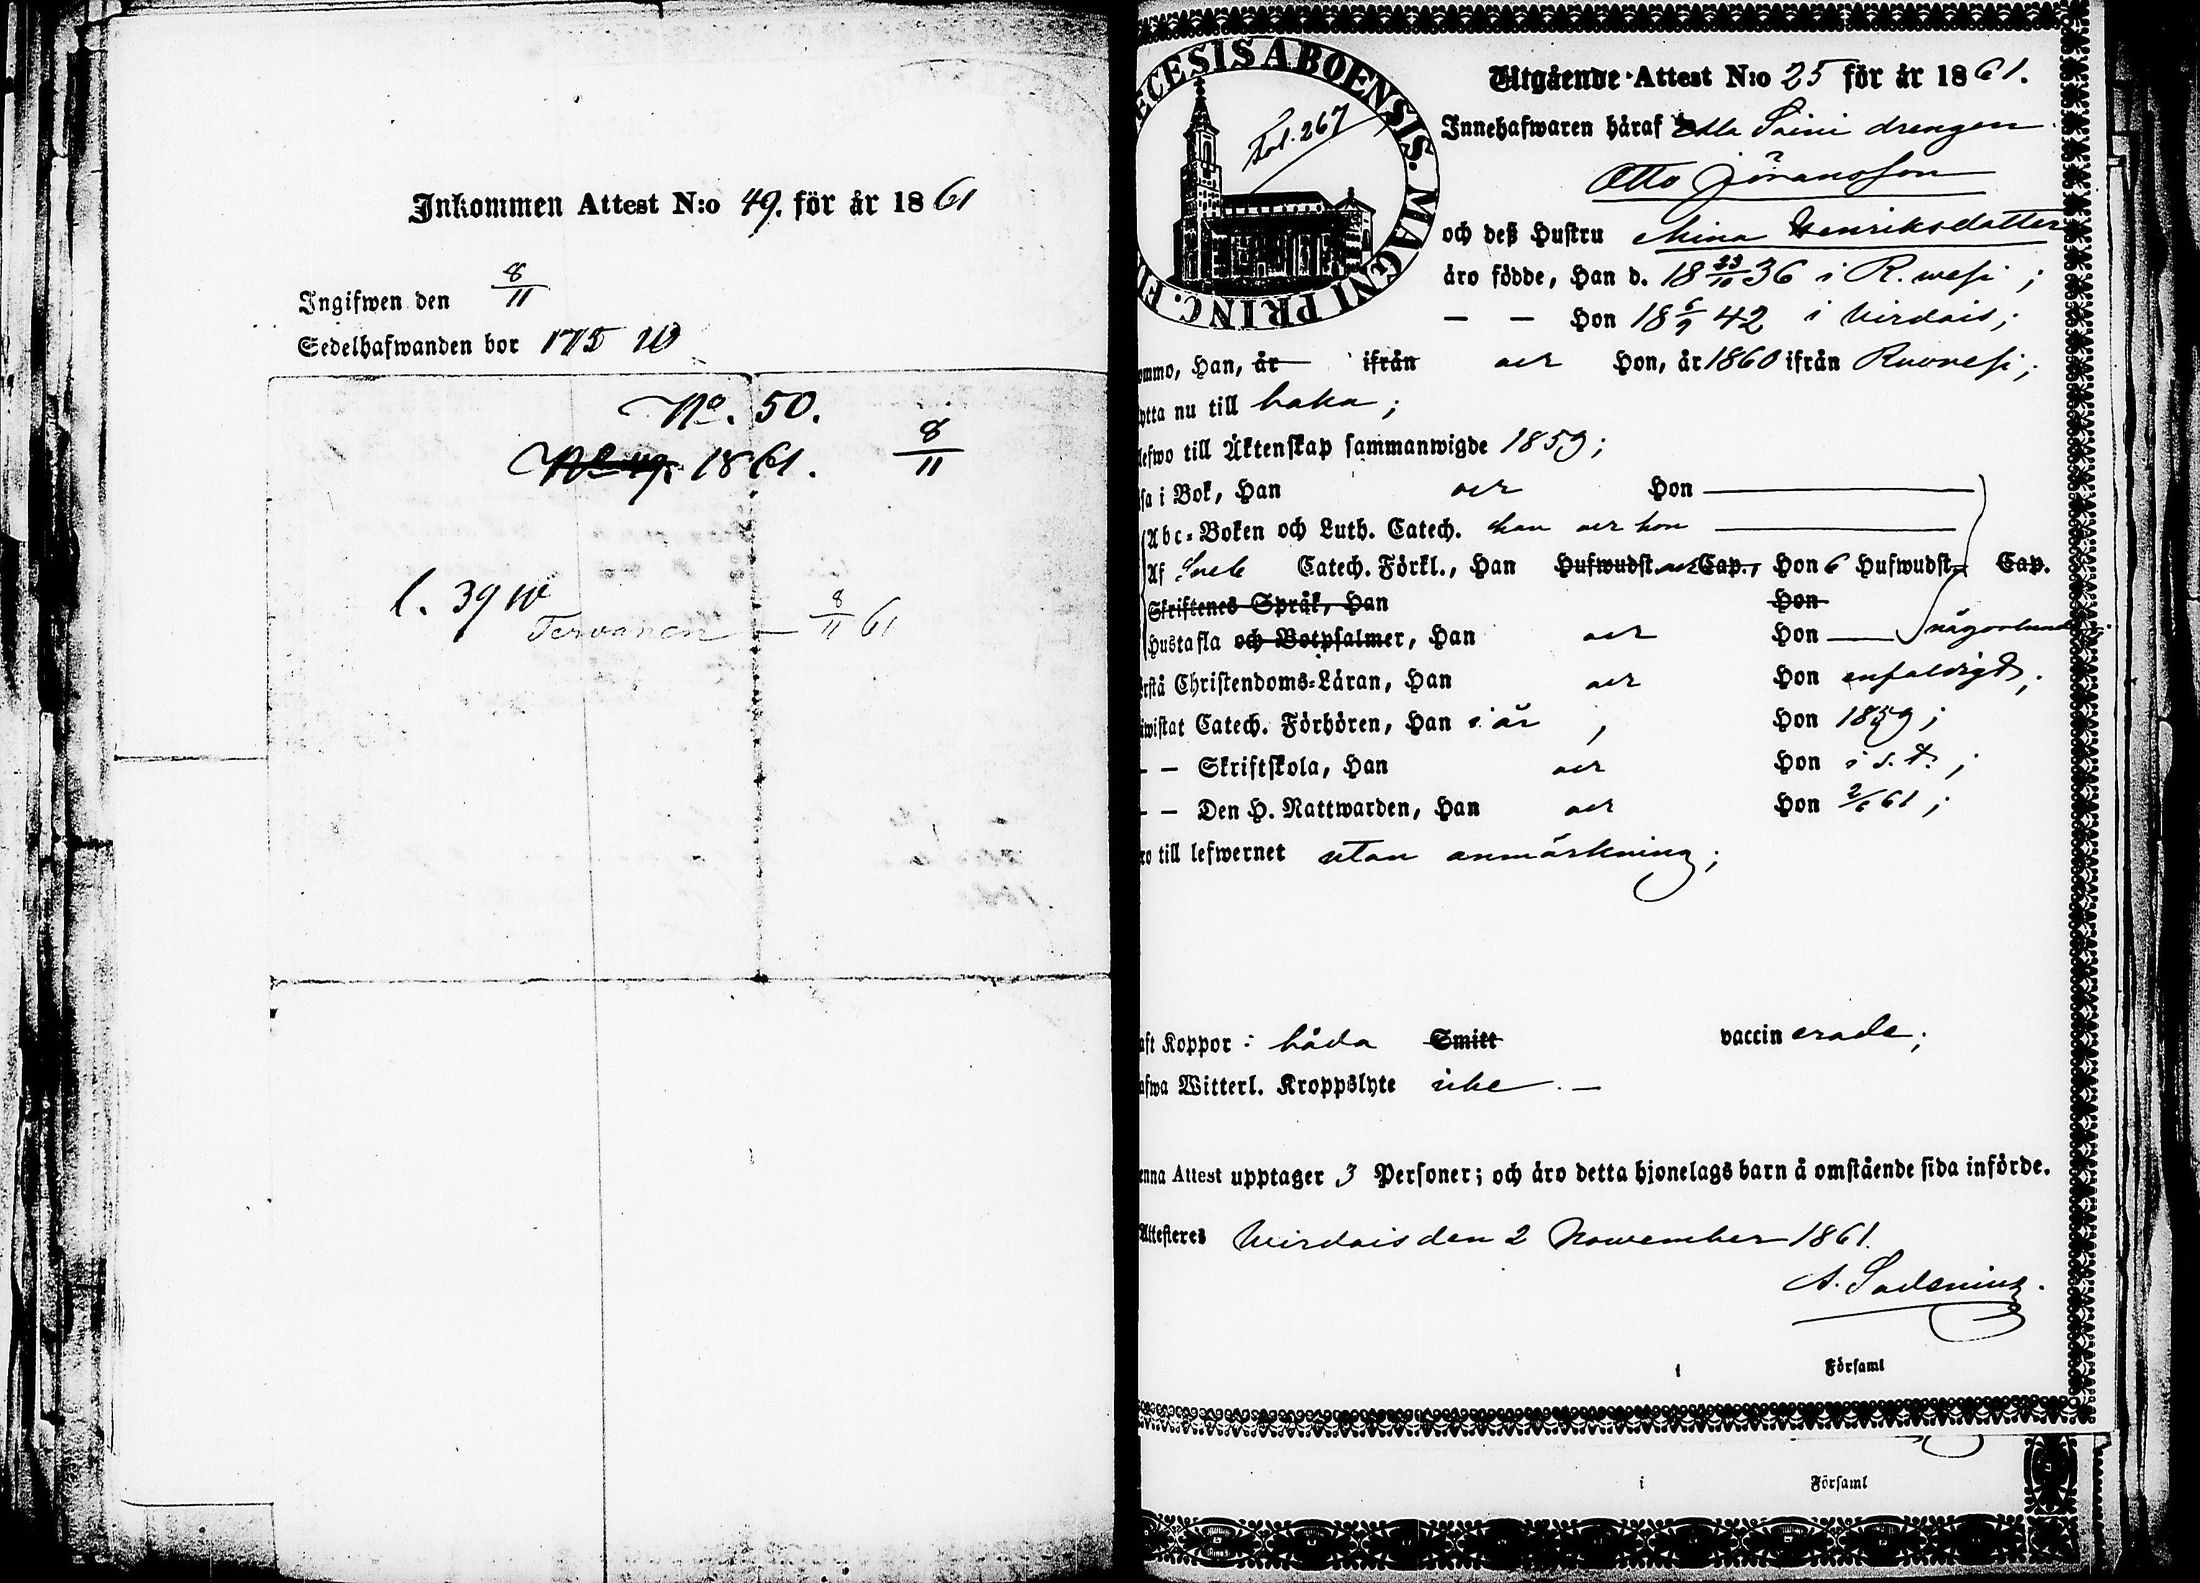 Inkommen Attest N:o 49. för år 1861
Ingifwen den 8/11
Sedelhafwanden bor 175 W
No. 50.
No 49. 1861. 8/11
l. 39 W
Tervanen — 8/11 61
ECESIS ABOENSIS. MAGNI PRINC. FI
Fol. 267
Utgående Attest N:o 25 för år 1861.
Innehafwaren håraf Soini drengen
Otto Jöransson
och deß Hustru Mina Henriksdotter
äro födde, Han d. 18 23/10 36 i R. wesi ;
— — Hon 18 6/9 42 i Virdois ;
ommo, Han, år ifrån aer Hon, år 1860 ifrån Ruovesi ;
ytta nu till baka ;
lefwo till Äktenskap sammanwigde 1859 ;
sa i Bok, Han aer Hon —
Abc-Boken och Luth. Catech. han aer hon —
Af Sveb Catech. Förkl., Han Hufwudst. aer Cap., Hon 6 Hufwudst. Cap.
Skriftenes Språk, Han Hon
Hustafla och Botpsalmer, Han aer Hon — någorlunda
rstå Christendoms-Läran, Han aer Hon enfaldigt ;
iwistat Catech. Förhören, Han i år , Hon 1859 ;
- — Skriftskola, Han aer Hon i s. t. ;
- — Den H. Nattwarden, Han aer Hon 2/6 61 ;
ro till lefwernet utan anmärkning ;
aft Koppor : båda Smitt vaccinerade ;
afwa Witterl. Kroppslyte icke . —
enna Attest upptager 3 Personer; och äro detta hjonelags barn å omstående sida införde.
Attesteres Virdois den 2 November 1861.
1 Församl
i Församl